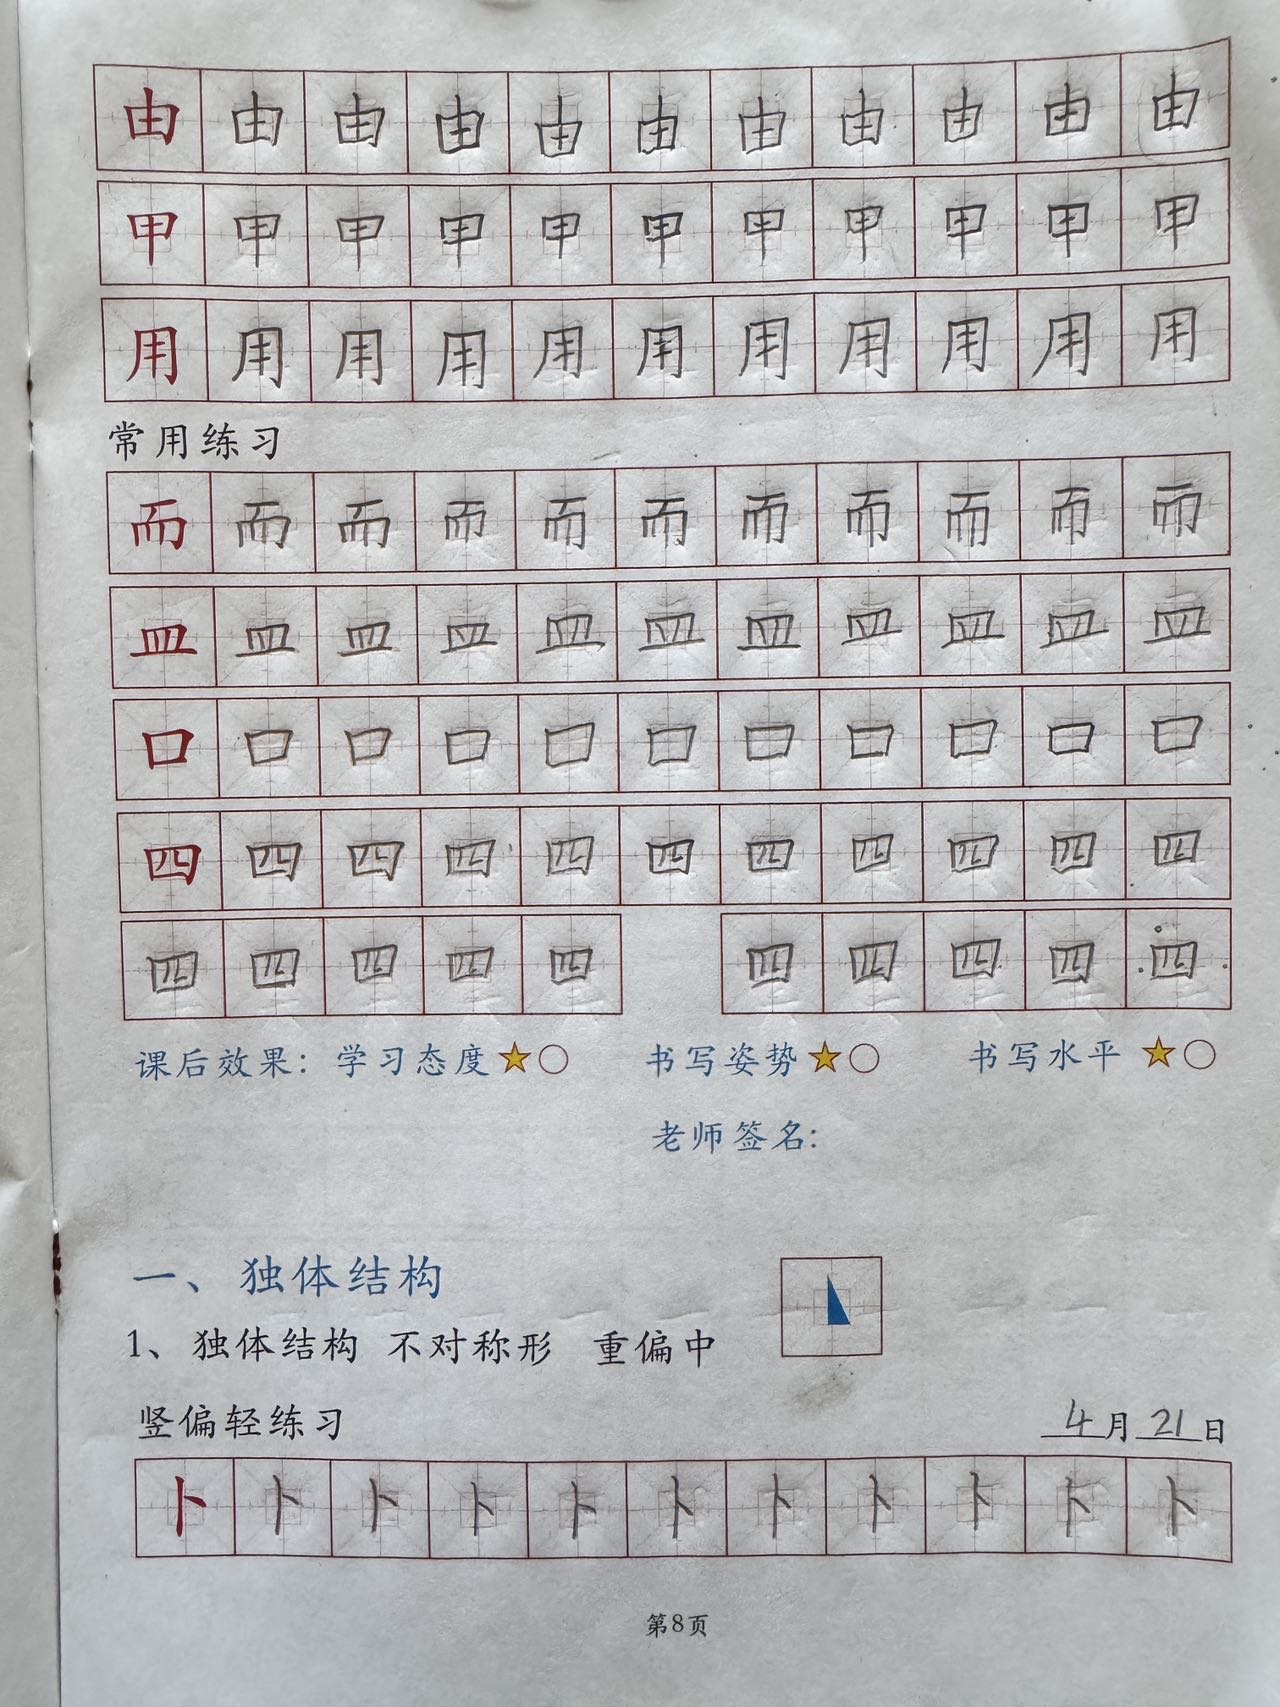 由由由由由由由由由由由
甲甲甲甲甲甲甲甲甲甲甲
用用用用用用用用用用用
常用练习
而而而而而而而而而而而
皿皿皿皿皿皿皿皿皿皿皿
口口口口口口口口口口口
四四四四四四四四四四四
四四四四四 四四四四四
课后效果：学习态度★○ 书写姿势★○ 书写水平★○
老师签名：
一、独体结构
1、独体结构 不对称形 重偏中
竖偏轻练习 4月21日
卜卜卜卜卜卜卜卜卜卜卜
第8页